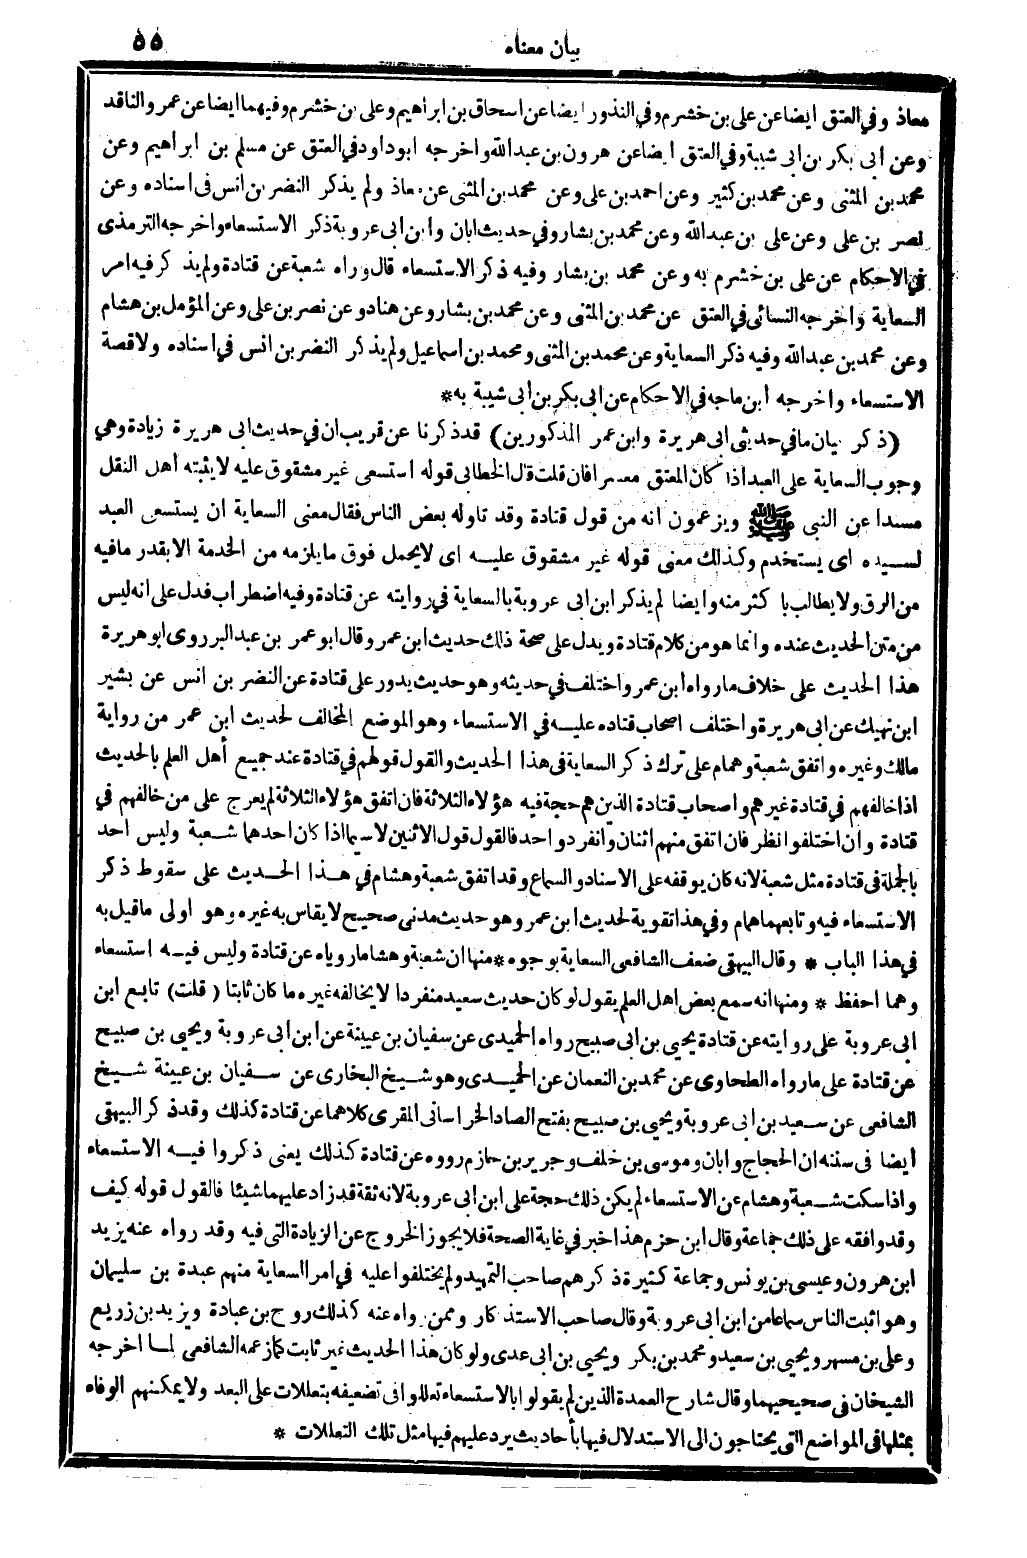 بيان معناه ٥٥
معاذ وفي العتق ايضا عن على بن خشرم وفي النذور ايضا عن اسحاق بن ابراهيم وعلى بن خشرم وفيهما ايضا عن عمر والناقد
وعن ابى بكر بن ابى شيبة وفي العتق ايضا عن هرون بن عبدالله واخرجه ابوداود في العتق عن مسلم بن ابراهيم وعن
محمد بن المثنى وعن محمد بن كثير وعن احمد بن على وعن محمد بن المثنى عن معاذ ولم يذكر النضر بن انس فى اسناده وعن
نصر بن على وعن على بن عبدالله وعن محمد بن بشار وفي حديث ابان وابن ابى عروبة ذكر الاستسعاء واخرجه الترمذى
في الاحكام عن على بن خشرم به وعن محمد بن بشار وفيه ذكر الاستسعاء قال وراه شعبة عن قتادة ولم يذكر فيه امر
السعاية واخرجه النسائى في العتق عن محمد بن المثنى وعن محمد بن بشار وعن هناد وعن نصر بن على وعن المؤمل بن هشام
وعن محمد بن عبدالله وفيه ذكر السعاية وعن محمد بن المثنى ومحمد بن اسماعيل ولم يذكر النضر بن انس في اسناده ولا قصة
الاستسعاء واخرجه ابن ماجه في الاحكام عن ابى بكر بن ابى شيبة به*
(ذكر بيان ما في حديثى ابى هريرة وابن عمر المذكورين) قد ذكرنا عن قريب ان في حديث ابى هريرة زيادة وهي
وجوب السعاية على العبد اذا كان المعتق معسرا فان قلت قال الخطابى قوله استسعى غير مشقوق عليه لا يثبته أهل النقل
مسندا عن النبى ﷺ ويزعمون انه من قول قتادة وقد تاوله بعض الناس فقال معنى السعاية ان يستسعى العبد
لسيده اى يستخدم وكذلك معنى قوله غير مشقوق عليه اى لا يحمل فوق ما يلزمه من الخدمة الا بقدر ما فيه
من الرق ولا يطالب باكثر منه وايضا لم يذكر ابن ابى عروبة بالسعاية في روايته عن قتادة وفيه اضطراب فدل على انه ليس
من متن الحديث عنده وانما هو من كلام قتادة ويدل على صحة ذلك حديث ابن عمر وقال ابو عمر بن عبد البر روى ابو هريرة
هذا الحديث على خلاف ما رواه ابن عمر واختلف في حديثه وهو حديث يدور على قتادة عن النضر بن انس عن بشير
ابن نهيك عن ابى هريرة واختلف اصحاب قتاده عليه في الاستسعاء وهو الموضع المخالف لحديث ابن عمر من رواية
مالك وغيره واتفق شعبة وهمام على ترك ذكر السعاية فى هذا الحديث والقول قولهم في قتادة عند جميع أهل العلم بالحديث
اذا خالفهم في قتادة غيرهم واصحاب قتادة الذين هم حجة فيه هؤلاء الثلاثة فان اتفق هؤلاء الثلاثة لم يعرج على من خالفهم في
قتادة وان اختلفوا نظر فان اتفق منهم اثنان وانفرد واحد فالقول قول الاثنين لا سيما اذا كان احدهما شعبة وليس احد
بالجملة فى قتادة مثل شعبة لانه كان يوقفه على الاسناد والسماع وقد اتفق شعبة وهشام في هذا الحديث على سقوط ذكر
الاستسعاء فيه وتابعهما همام وفي هذا تقوية لحديث ابن عمر وهو حديث مدنى صحيح لا يقاس به غيره وهو اولى ما قيل به
في هذا الباب * وقال البيهقى ضعف الشافعى السعاية بوجوه* منها ان شعبة وهشاما روياه عن قتادة وليس فيه استسعاء
وهما احفظ * ومنها انه سمع بعض اهل العلم يقول لو كان حديث سعيد منفردا لا يخالفه غيره ما كان ثابتا (قلت) تابع ابن
ابى عروبة على روايته عن قتادة يحيى بن ابى صبيح رواه الحميدى عن سفيان بن عيينة عن ابن ابى عروبة ويحيى بن صبيح
عن قتادة على ما رواه الطحاوى عن محمد بن النعمان عن الحميدى وهو شيخ البخارى عن سفيان بن عيينة شيخ
الشافعى عن سعيد بن ابى عروبة ويحيى بن صبيح بفتح الصاد الخراسانى المقرى كلاهما عن قتادة كذلك وقد ذكر البيهقى
أيضا فى سننه ان الحجاج وابان وموسى بن خلف وجرير بن حازم رووه عن قتادة كذلك يعنى ذكروا فيه الاستسعاء
واذا سكت شعبة وهشام عن الاستسعاء لم يكن ذلك حجة على ابن ابى عروبة لانه ثقة قد زاد عليهما شيئا فالقول قوله كيف
وقد وافقه على ذلك جماعة وقال ابن حزم هذا خبر في غاية الصحة فلا يجوز الخروج عن الزيادة التى فيه وقد رواه عنه يزيد
ابن هرون وعيسى بن يونس وجماعة كثيرة ذكرهم صاحب التمهيد ولم يختلفوا عليه في امر السعاية منهم عبدة بن سليمان
وهو اثبت الناس سماعا من ابن ابى عروبة وقال صاحب الاستذكار وممن رواه عنه كذلك روح بن عبادة ويزيد بن زريع
وعلى بن مسهر ويحيى بن سعيد ومحمد بن بكر ويحيى بن ابى عدى ولو كان هذا الحديث غير ثابت كما زعمه الشافعى لما اخرجه
الشيخان فى صحيحيهما وقال شارح العمدة الذين لم يقولوا بالاستسعاء تعللوا فى تضعيفه بتعللات على البعد ولا يمكنهم الوفاء
بمثلها فى المواضع التى يحتاجون الى الاستدلال فيها بأحاديث يرد عليهم فيها مثل تلك التعللات *